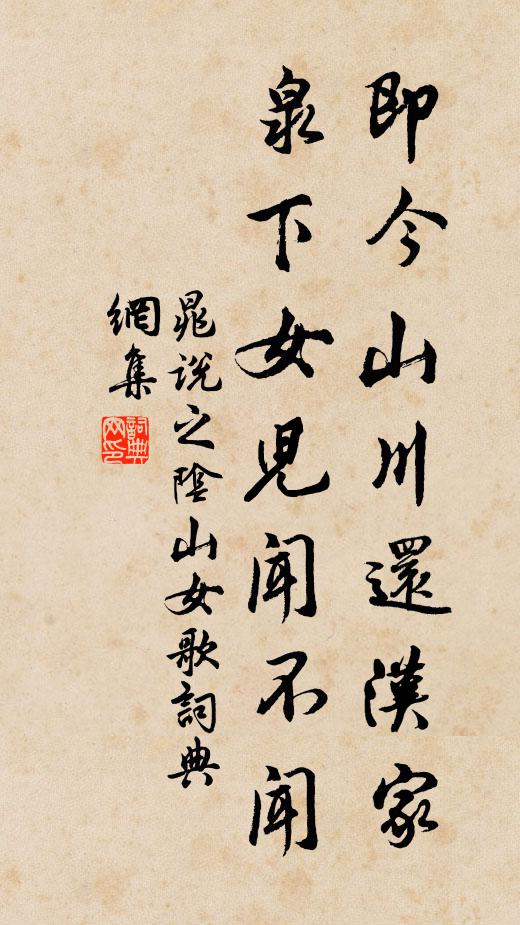 即今山川還漢家
泉下女兒聞不聞
晁說之陰山女歌詞典
網集
詞典
网印